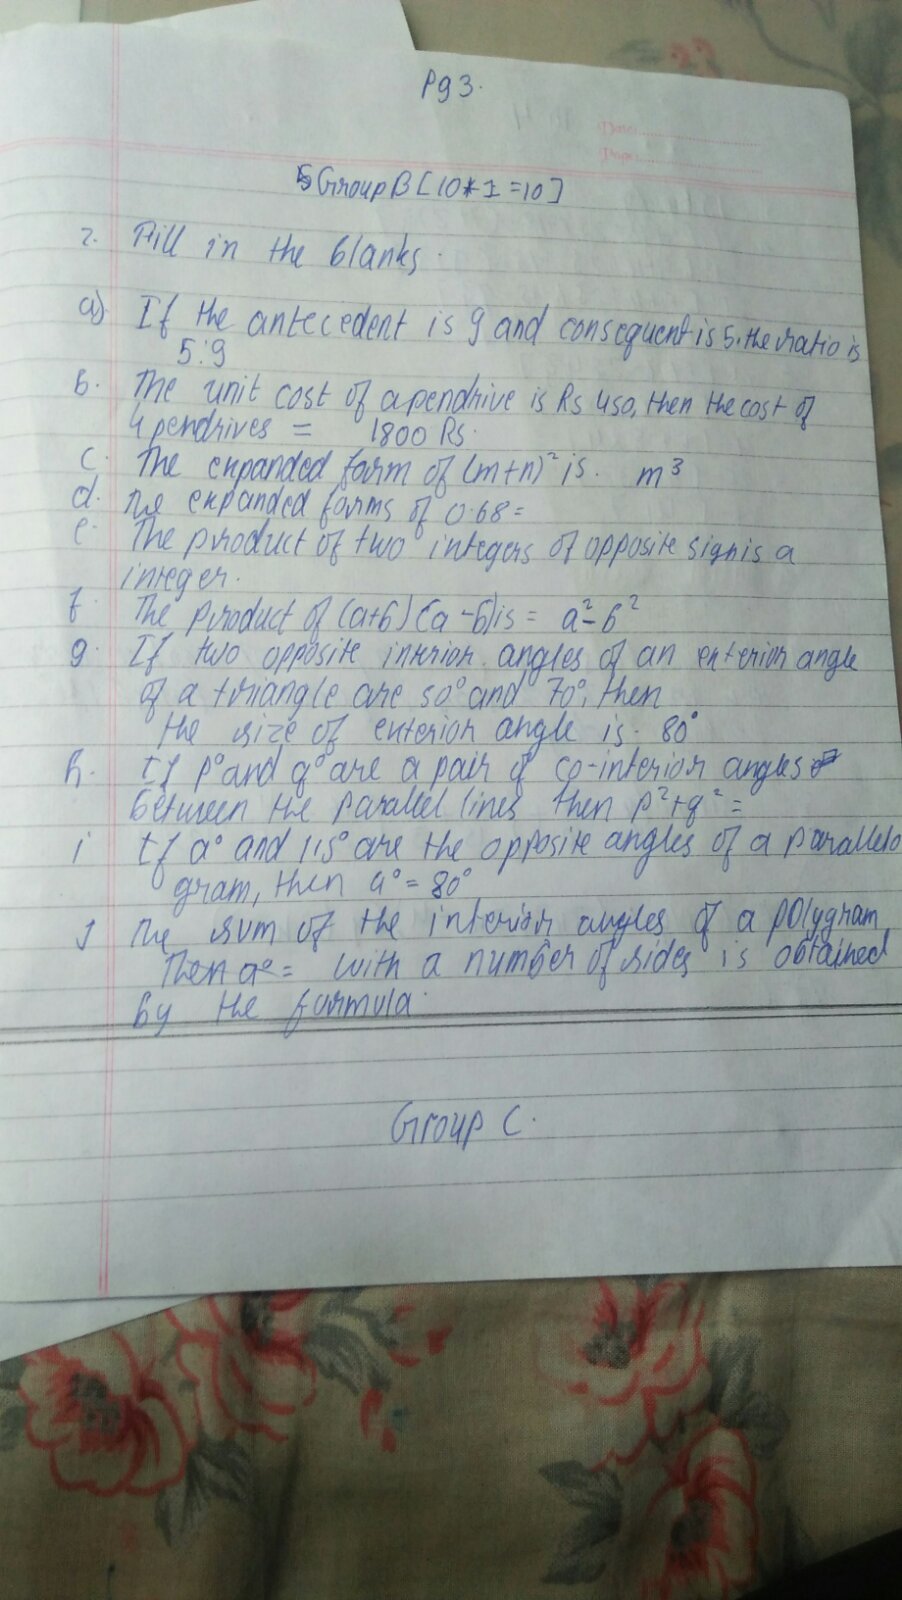 Pg 3.
Date:
Page:
Group B [10*1=10]
2. Fill in the blanks.
a) If the antecedent is 9 and consequent is 5. the ratio is
5:9
b. The unit cost of a pendrive is Rs 450, then the cost of
4 pendrives = 1800 Rs.
c. The expanded form of (m+n)² is. m³
d. The expanded forms of 0.68 =
e. The product of two integers of opposite sign is a
integer.
f. The product of (a+b) (a-b) is = a²-b²
g. If two opposite interior angles of an exterior angle
of a triangle are 50° and 70°, then
the size of exterior angle is. 80°
h. If p° and q° are a pair of co-interior angles
between the parallel lines then p²+q² =
i If a° and 115° are the opposite angles of a parallelo
gram, then a° = 80°
J The sum of the interior angles of a polygram
Then a° = with a number of sides is obtained
by the formula.
Group C.